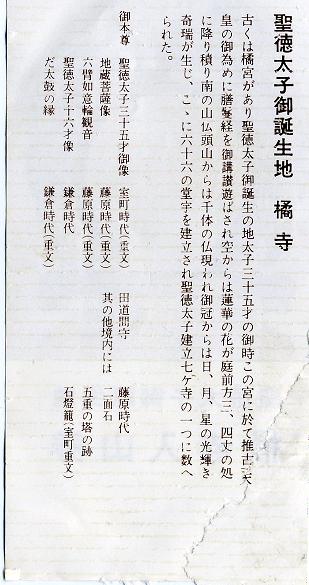 聖徳太子御誕生地　橘寺
古くは橘宮があり聖徳太子御誕生の地太子三十五才の御時この宮に於て推古天
皇の御為めに勝鬘経を御講讃遊ばされ空からは蓮華の花が庭前方三、四丈の処
に降り積り南の山仏頭山からは千体の仏現われ御冠からは日、月、星の光輝き
奇瑞が生じ、こゝに六十六の堂宇を建立され聖徳太子建立七ケ寺の一つに数へ
られた。
御本尊　聖徳太子三十五才御像　室町時代(重文)
地蔵菩薩像　藤原時代(重文)
六臂如意輪観音　藤原時代(重文)
聖徳太子十六才像　鎌倉時代
だ太鼓の縁　鎌倉時代(重文)
田道間守　藤原時代
其の他境内には　二面石
五重の塔の跡
石燈籠(室町重文)